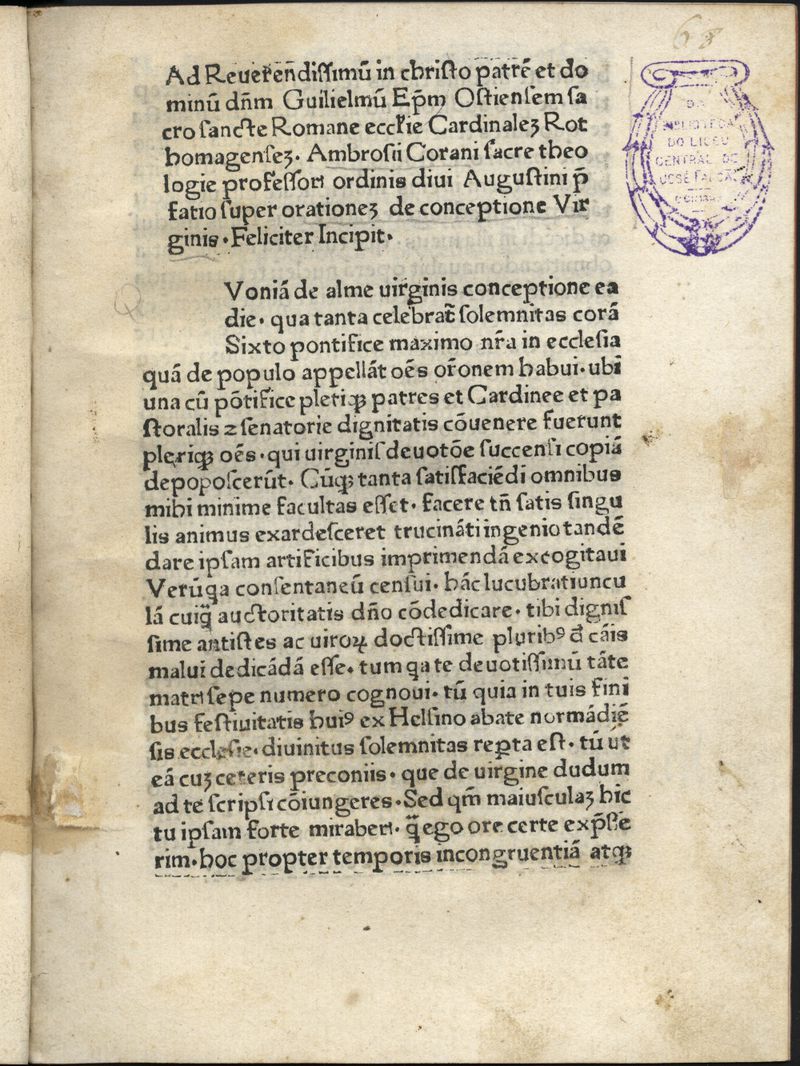 68
Ad Reuerēdissimū in christo patrē et do
minū dñm Guilielmū Ep̄m Ostiensem sa
cro sancte Romane eccl̄ie Cardinaleꝫ Rot
homagenseꝫ. Ambrosii Corani sacre theo
logie professori ordinis diui Augustini p̄
fatio super orationeꝫ de conceptione Vir
ginis. Feliciter Incipit.
DA
BIBLIOTECA
DO LICEU
CENTRAL DE
JOSÉ FALCÃO
COIMBRA
Q
Voniā de alme uirginis conceptione ea
die. qua tanta celebrat̄ solemnitas corā
Sixto pontifice maximo nr̄a in ecclesia
quā de populo appellāt oēs or̄onem habui. ubi
una cū pōtifice pleriqꝫ patres et Cardinee et pa
storalis ⁊ senatorie dignitatis cōuenere fuerunt
pleriqꝫ oēs. qui uirginis deuotōe succensi copiā
depoposcerūt. Cūqꝫ tanta satisfaciēdi omnibus
mihi minime facultas esset. facere tn̄ satis singu
lis animus exardesceret trucināti ingenio tandē
dare ipsam artificibus imprimendā excogitaui
Verūqa consentaneū censui. hāc lucubratiuncu
lā cuiq̄ auctoritatis dño cōdedicare. tibi dignis
sime antistes ac uiroꝝ doctissime pluribꝰ d̄ cāis
malui dedicādā esse. tum qa te deuotissimū tāte
matri sepe numero cognoui. tū quia in tuis fini
bus festiuitatis huiꝰ ex Helsino abate normādiē
sis ecclesie. diuinitus solemnitas rep̱ta est. tū ut
eā cuꝫ ceteris preconiis. que de uirgine dudum
ad te scripsi cōiungeres. Sed qm̄ maiusculaꝫ hic
tu ipsam forte miraberi. q̄ ego ore certe exp̄sse
rim. hoc propter temporis incongruentiā atqꝫ